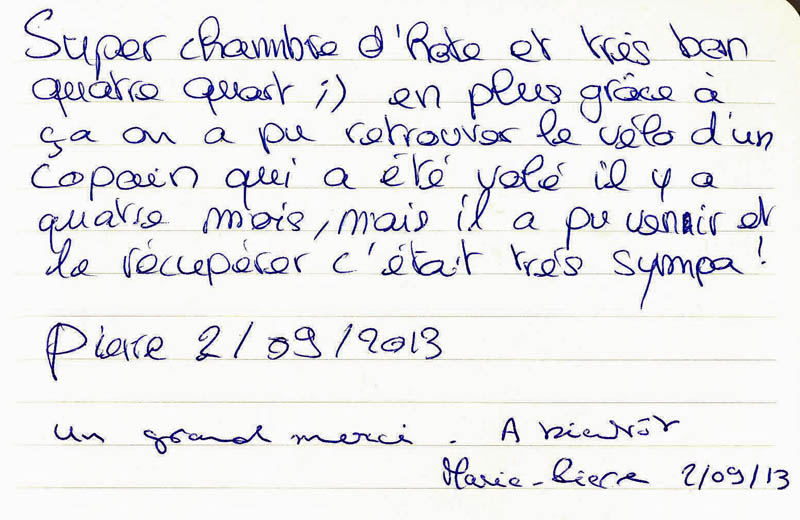 Super chambre d'hote et très bon
quatre quart ;) en plus grâce à
ça on a pu retrouver le vélo d'un
copain qui a été volé il y a
quatre mois, mais il a pu venir et
le récupérer c'était très sympa !
Pierre 2/09/2013
un grand merci. A bientôt
Marie-Pierre 2/09/13